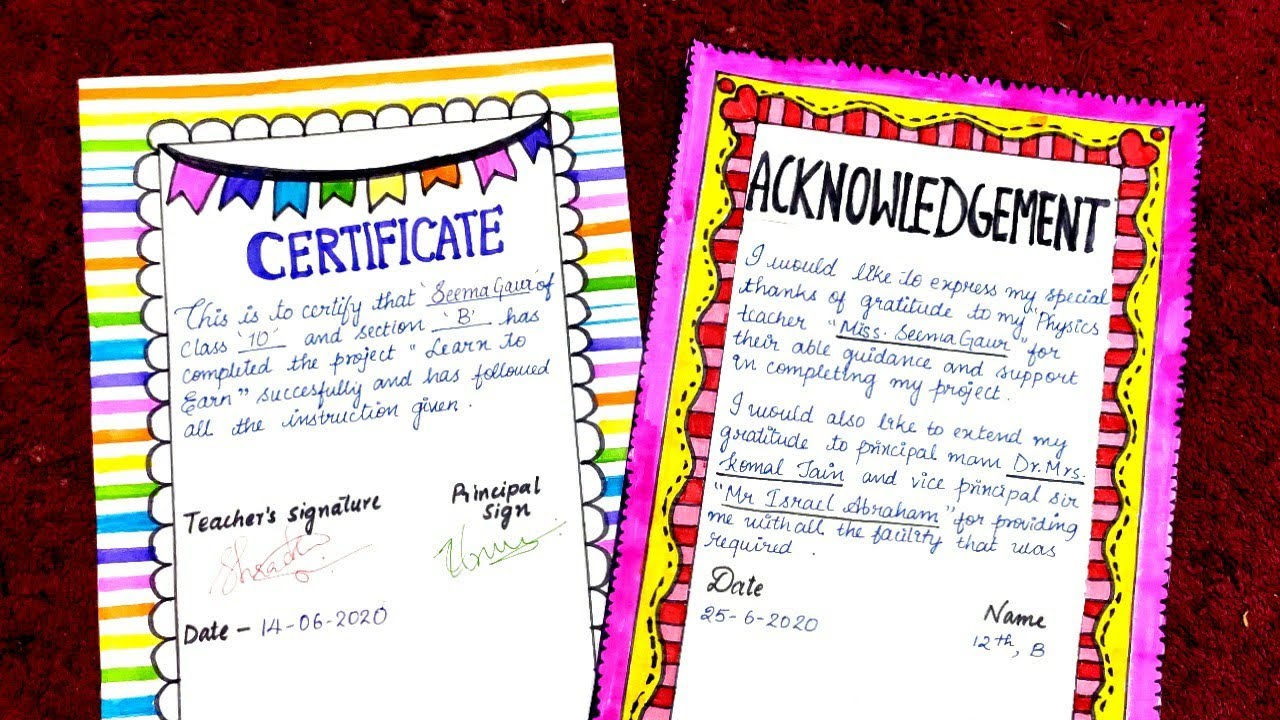 CERTIFICATE
This is to certify that 'Seema Gaur' of
class '10' and section 'B' has
completed the project "Learn to
Earn" succesfully and has followed
all the instruction given.
Teacher's signature
Principal
Sign
Date - 14-06-2020
ACKNOWLEDGEMENT
I would like to express my special
thanks of gratitude to my "Physics
teacher "Miss. Seema Gaur" for
their able guidance and support
in completing my project.
I would also like to extend my
gratitude to principal mam Dr. Mrs.
Komal Jain and vice principal sir
"Mr Israel Abraham" for providing
me with all the facility that was
required.
Date
25-6-2020
Name
12th, B